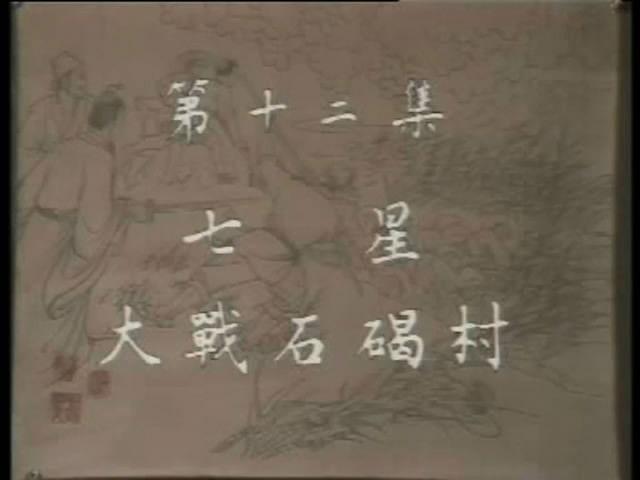 第十二集
七星
大戰石碣村